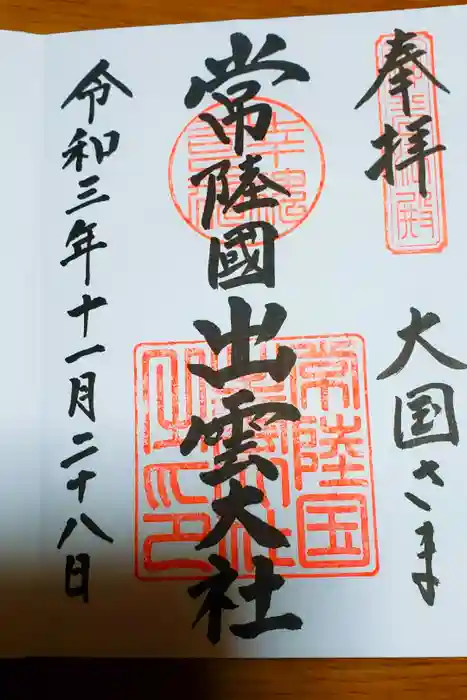 奉拝
大国さま
常陸國出雲大社
常陸国
令和三年十一月二十八日